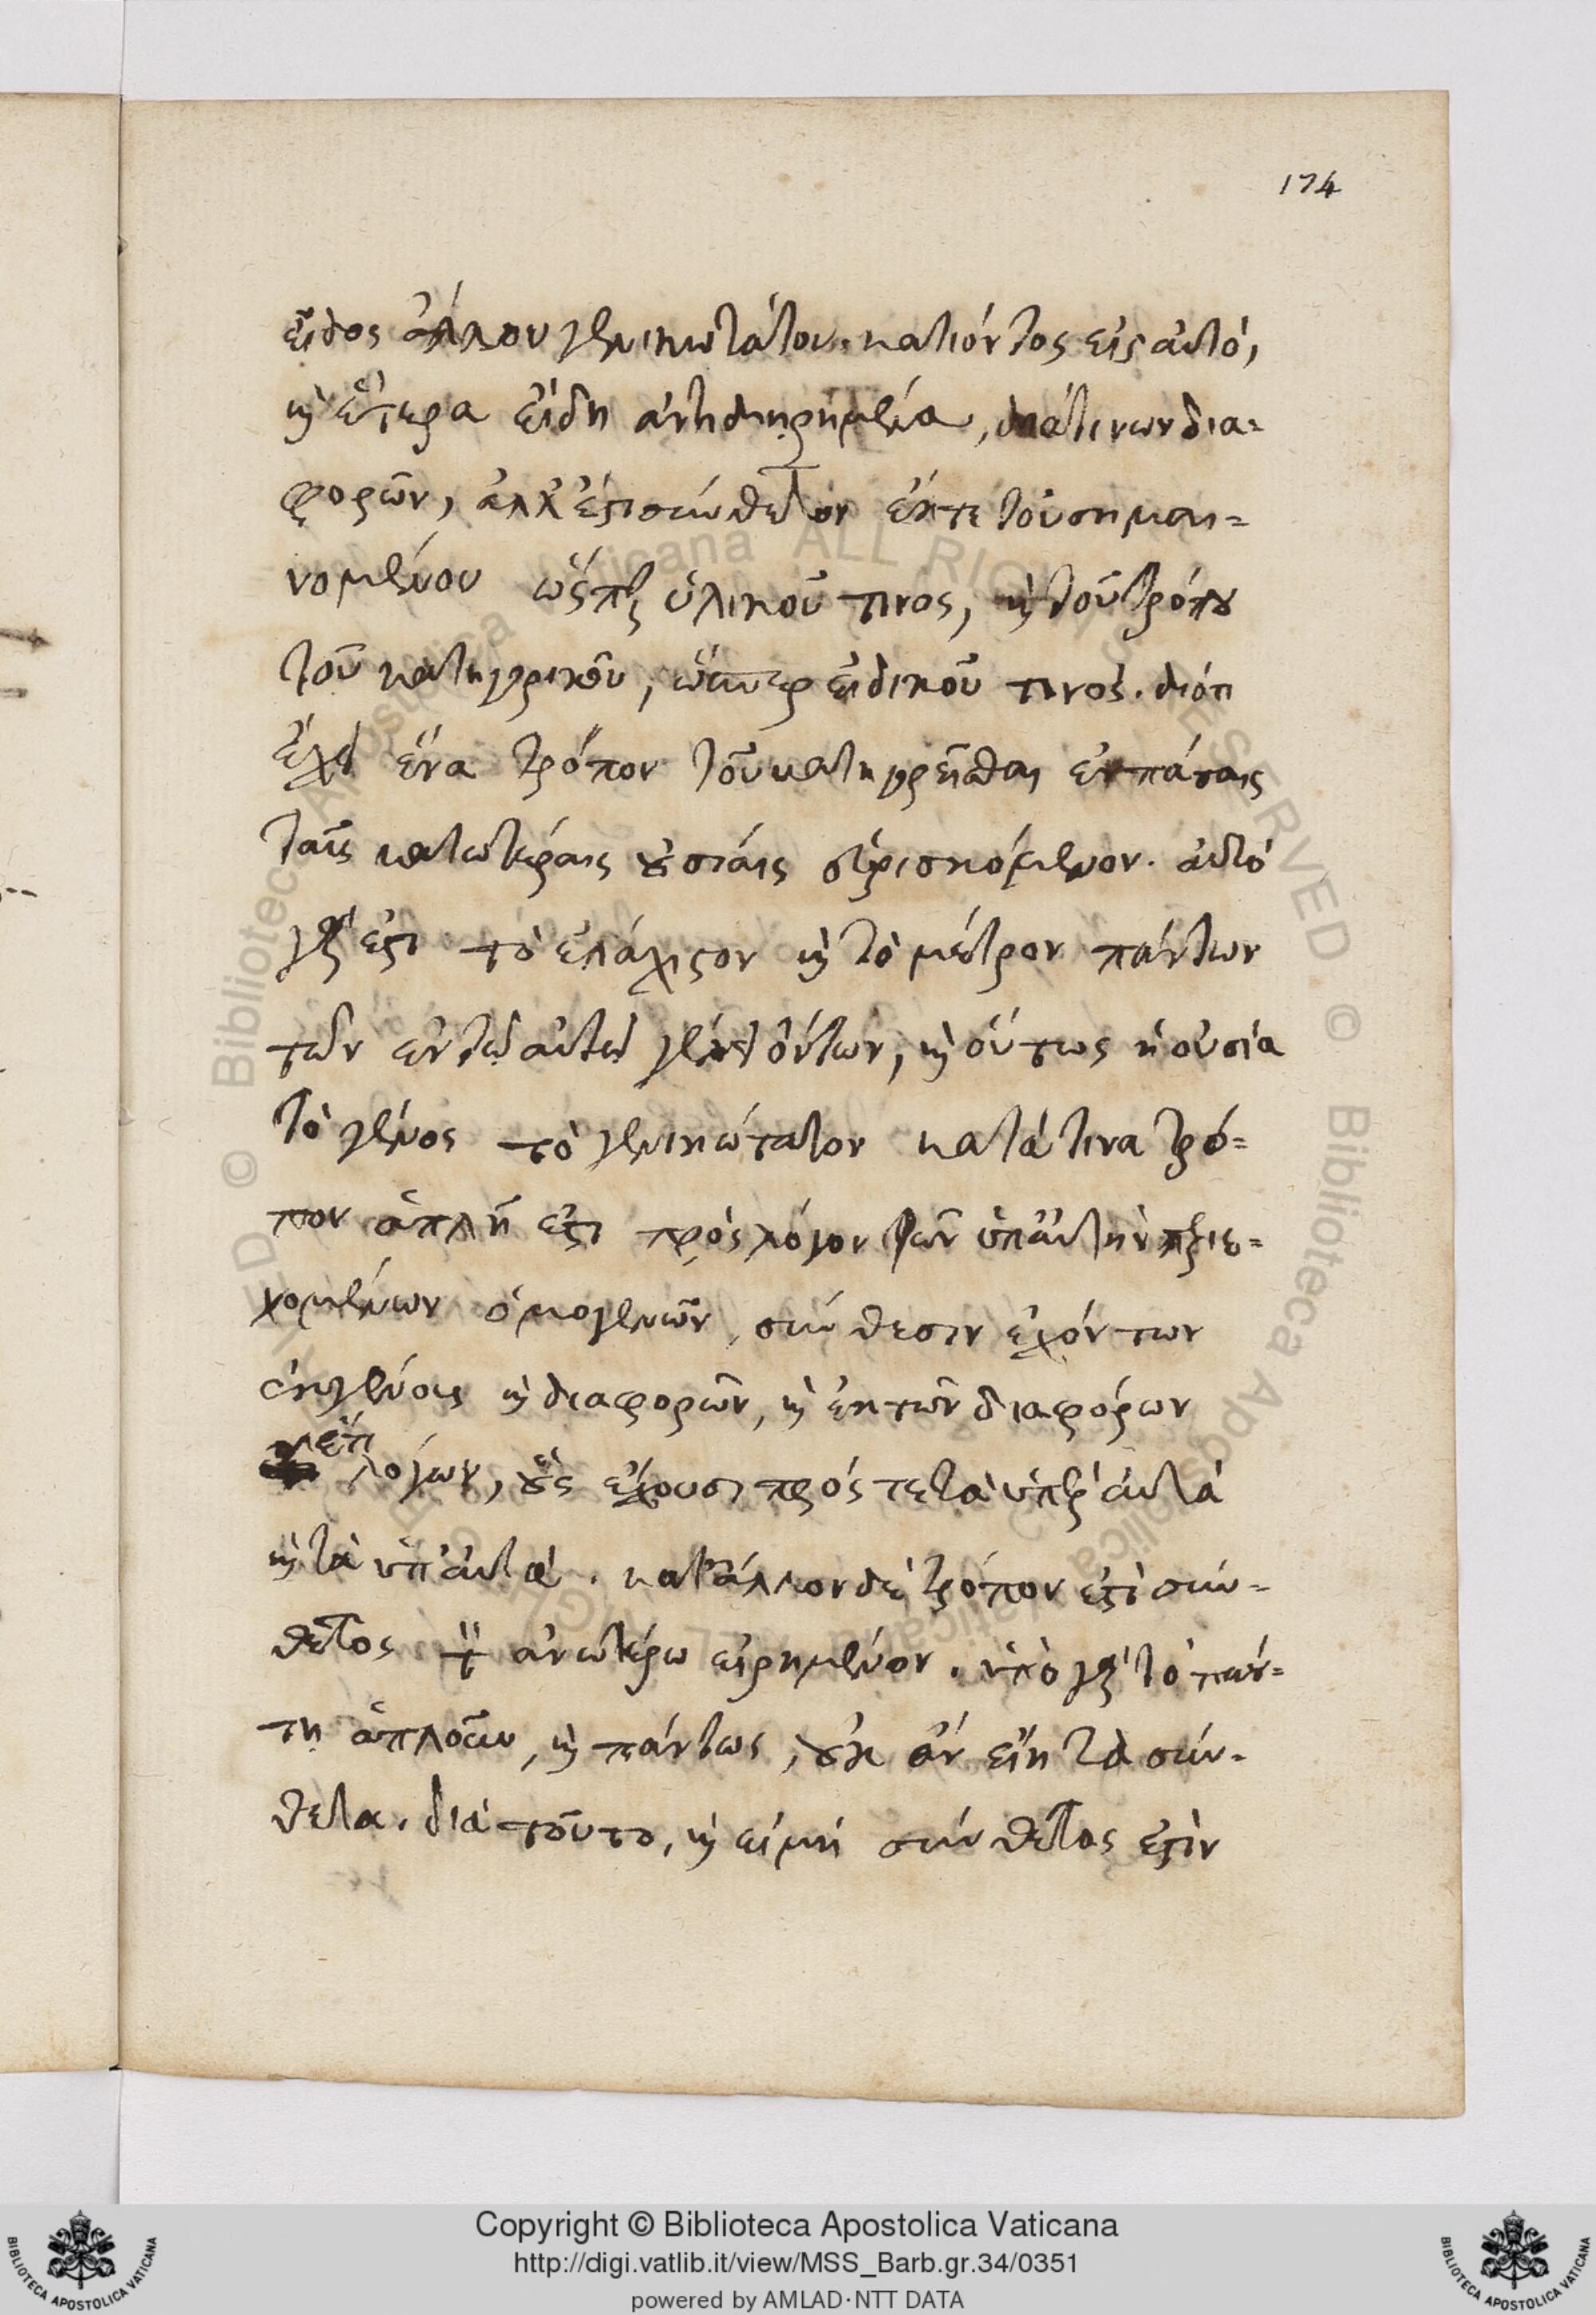 174
εἶδος ἄλλου γενικωτάτου κατιόντος εἰς αὐτό,
καὶ ἕτερα εἴδη ἀντιδιῃρημένα, διά τινων δια-
φορῶν, ἀλλ' ἔστι σύνθετον ἔκ τε τοῦ σημαι-
νομένου ὥσπερ ὑλικοῦ τινος, καὶ τοῦ τρόπου
τοῦ κατηγορικοῦ, ὥσπερ εἰδικοῦ τινος. διότι
ἔχει ἕνα τρόπον τοῦ κατηγορεῖσθαι ἐν πάσαις
ταῖς κατωτέραις οὐσίαις εὑρισκόμενον. αὐτό
γάρ ἐστι τὸ ἐλάχιστον καὶ τὸ μέτρον πάντων
τῶν ἐν τῷ αὐτῷ γένει ὄντων, καὶ οὕτως ἡ οὐσία
τὸ γένος τὸ γενικώτατον κατά τινα τρό-
πον ἁπλῆ ἐστι πρὸς λόγον τῶν ὑπ' αὐτὴν περιε-
χομένων ὁμογενῶν, σύνθεσιν ἐχόντων
ἐκ γένους καὶ διαφορῶν, καὶ ἐκ τῶν διαφόρων
ἔτι
λόγων, οὓς ἔχουσι πρός τε τὰ ὑπὲρ αὐτὰ
καὶ τὰ ὑπ' αὐτά. κατ' ἄλλον δὲ τρόπον ἐστὶ σύν-
θετος τὸν ἀνωτέρω εἰρημένον. ὑπὸ γὰρ τὸ πάν-
τῃ ἁπλοῦν, καὶ πάντως, οὐκ ἂν εἴη τὰ σύν-
θετα. διὰ τοῦτο, καὶ εἰ μὴ σύνθετος ἐστὶν
Copyright © Biblioteca Apostolica Vaticana
http://digi.vatlib.it/view/MSS_Barb.gr.34/0351
powered by AMLAD·NTT DATA